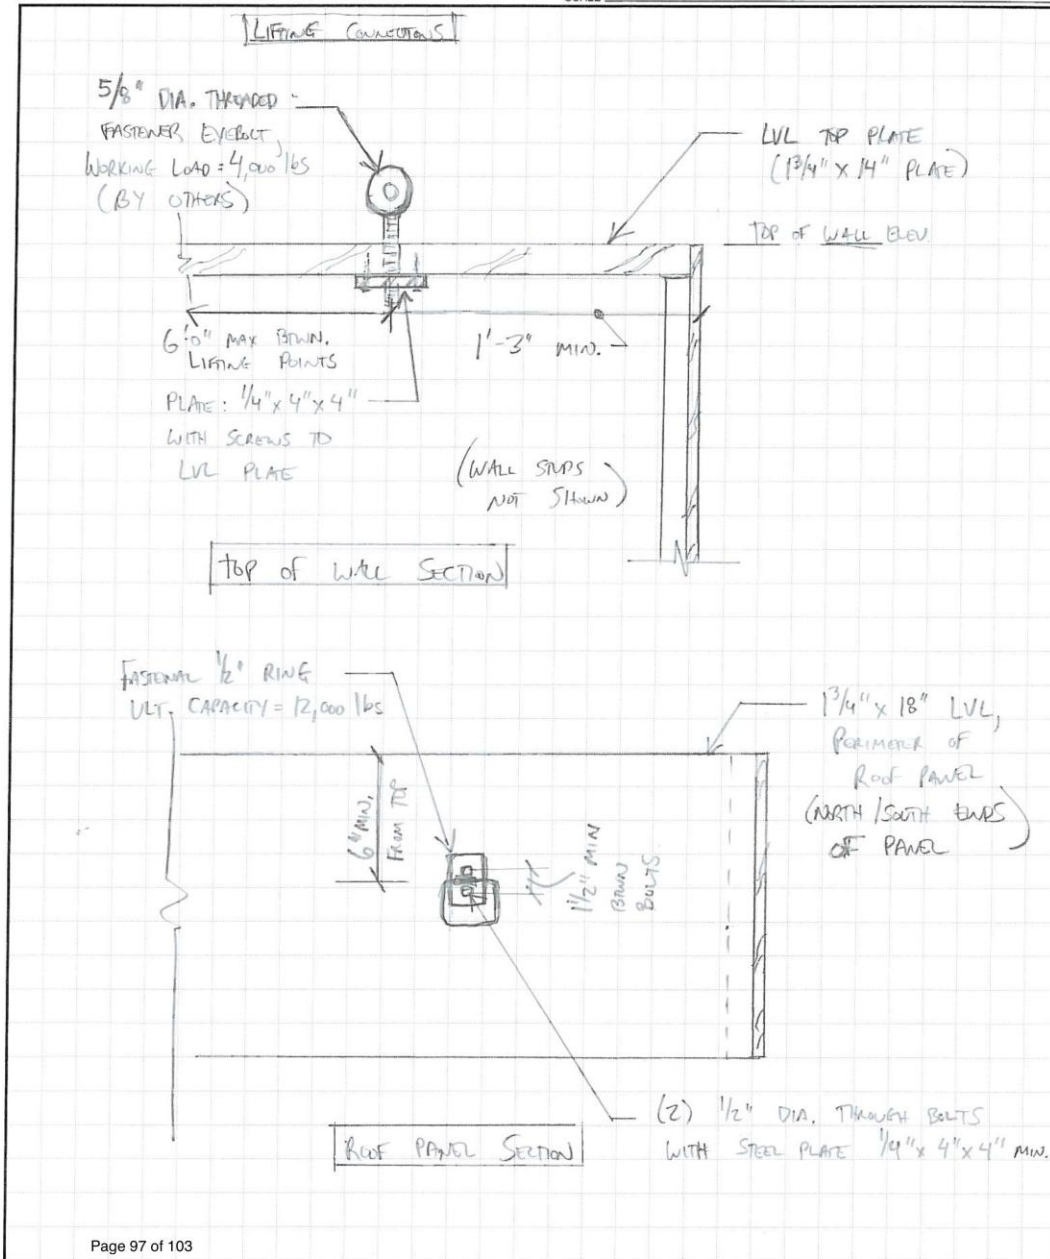 LIFTING CONNECTIONS
5/8" DIA. THREADED
FASTENER EYEBOLT,
WORKING LOAD = 4,000 lbs
(BY OTHERS)
LVL TOP PLATE
(1 3/4" x 14" PLATE)
TOP OF WALL ELEV
6'-0" MAX BTWN.
LIFTING POINTS
1'-3" MIN.
PLATE: 1/4" x 4" x 4"
WITH SCREWS TO
LVL PLATE
(WALL STUDS
NOT SHOWN)
TOP OF WALL SECTION
FASTENAL 1/2" RING
ULT. CAPACITY = 12,000 lbs
1 3/4" x 18" LVL,
PERIMETER OF
ROOF PANEL
(NORTH/SOUTH ENDS
OF PANEL)
6" MIN.
FROM TOP
1 1/2" MIN
BTWN
BOLTS
(2) 1/2" DIA. THROUGH BOLTS
WITH STEEL PLATE 1/4" x 4" x 4" MIN.
ROOF PANEL SECTION
Page 97 of 103